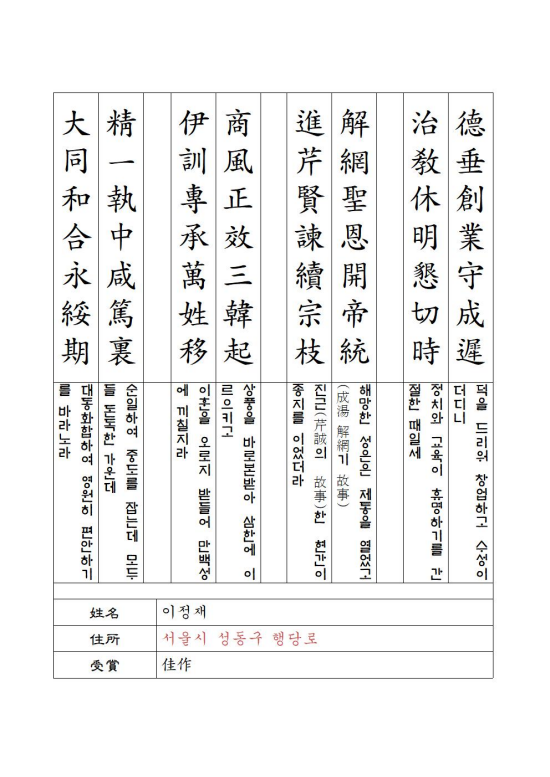 德垂創業守成遲
治敎休明懇切時
解網聖恩開帝統
進芹賢諫續宗枝
商風正效三韓起
伊訓專承萬姓移
精一執中咸篤裏
大同和合永綏期
덕을 드리워 창업하고 수성이
더디니
정치와 교육이 휴명하기를 간
절한 때일세
해망한 성은은 제통을 열었고
(成湯 解網기 故事)
진근(芹誠의 故事)한 현간이
종지를 이었더라
상풍을 바로본받아 삼한에 이
르으키고
이훈을 오로지 받들어 만백성
에 끼칠지라
순일하여 중도를 잡는데 모두
들 돈독한 가운데
대동화합하여 영원히 편안하기
를 바라노라
姓名 이정재
住所 서울시 성동구 행당로
受賞 佳作